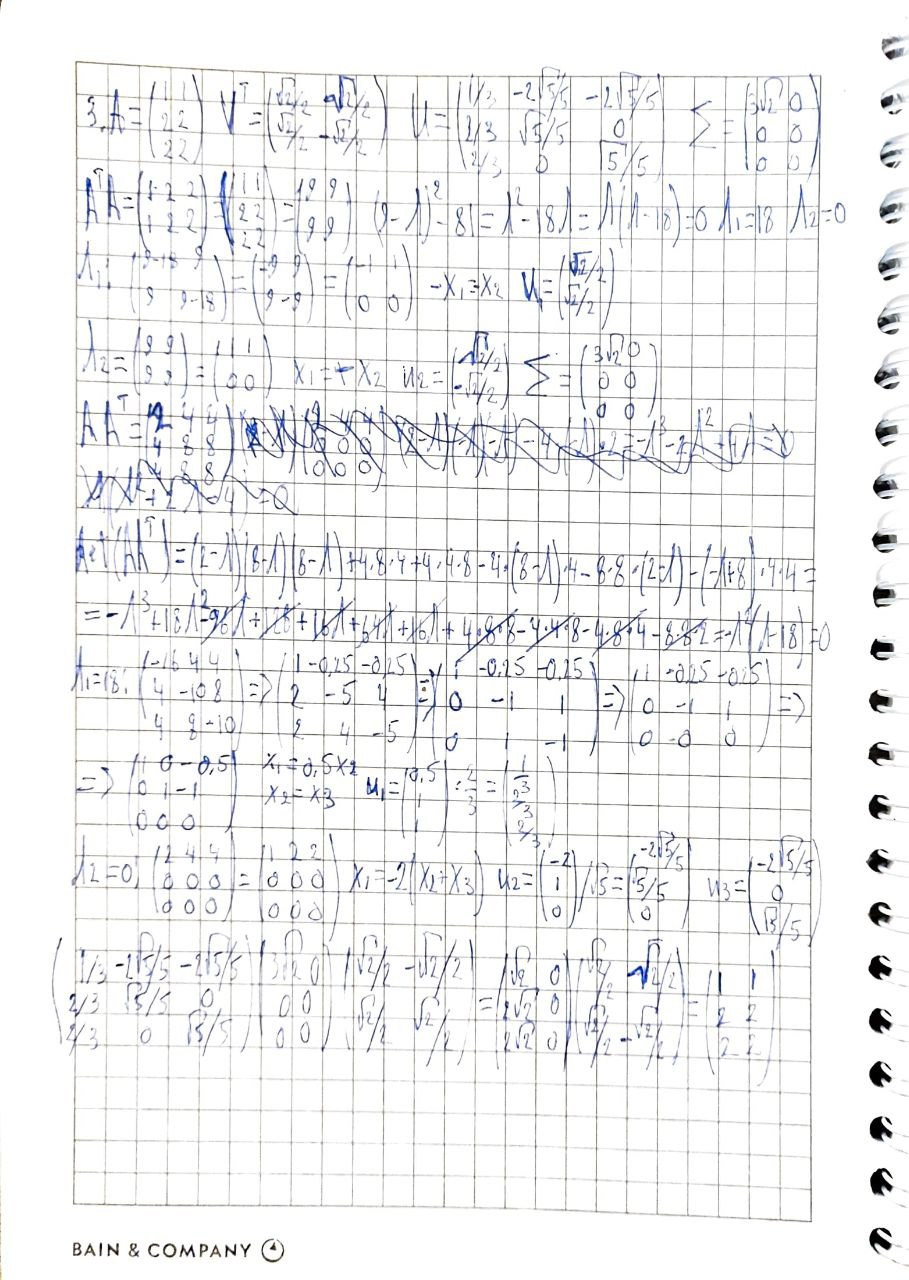 3. A = (1 1; 2 2; 2 2) V^T = (√2/2 √2/2; √2/2 -√2/2) U = (1/3 -2√5/5 -2√5/5; 2/3 √5/5 0; 2/3 0 √5/5) Σ = (3√2 0; 0 0; 0 0)
A^T A = (1 2 2; 1 2 2) (1 1; 2 2; 2 2) = (9 9; 9 9) (9-λ)² - 81 = λ² - 18λ = λ(λ-18) = 0 λ1 = 18 λ2 = 0
λ1: (9-18 9; 9 9-18) = (-9 9; 9 -9) = (-1 1; 0 0) -x1 = x2 u1 = (√2/2; √2/2)
λ2 = (9 9; 9 9) = (1 1; 0 0) x1 = -x2 u2 = (√2/2; -√2/2) Σ = (3√2 0; 0 0; 0 0)
A A^T = (2 4 4; 4 8 8; 4 8 8)
det(AA^T) = (2-λ)(8-λ)(8-λ) + 4·8·4 + 4·4·8 - 4·(8-λ)·4 - 8·8·(2-λ) - (-λ+8)·4·4 =
= -λ³ + 18λ² - 96λ + 128 + 16λ + 64λ + 16λ + 4·8·8 - 4·4·8 - 4·8·4 - 8·8·2 = -λ²(λ-18) = 0
λ1 = 18: (-16 4 4; 4 -10 8; 4 8 -10) => (1 -0,25 -0,25; 2 -5 4; 2 4 -5) => (1 -0,25 -0,25; 0 -1 1; 0 1 -1) => (1 -0,25 -0,25; 0 -1 1; 0 0 0) =>
=> (1 0 -0,5; 0 1 -1; 0 0 0) x1 = 0,5x2 x2 = x3 u1 = (0,5; 1; 1) · 2/3 = (1/3; 2/3; 2/3)
λ2 = 0: (2 4 4; 0 0 0; 0 0 0) = (1 2 2; 0 0 0; 0 0 0) x1 = -2(x2+x3) u2 = (-2; 1; 0)/√5 = (-2√5/5; √5/5; 0) u3 = (-2√5/5; 0; √5/5)
(1/3 -2√5/5 -2√5/5; 2/3 √5/5 0; 2/3 0 √5/5) (3√2 0; 0 0; 0 0) (√2/2 -√2/2; √2/2 √2/2) = (√2 0; 2√2 0; 2√2 0) (√2/2 √2/2; √2/2 -√2/2) = (1 1; 2 2; 2 2)
BAIN & COMPANY